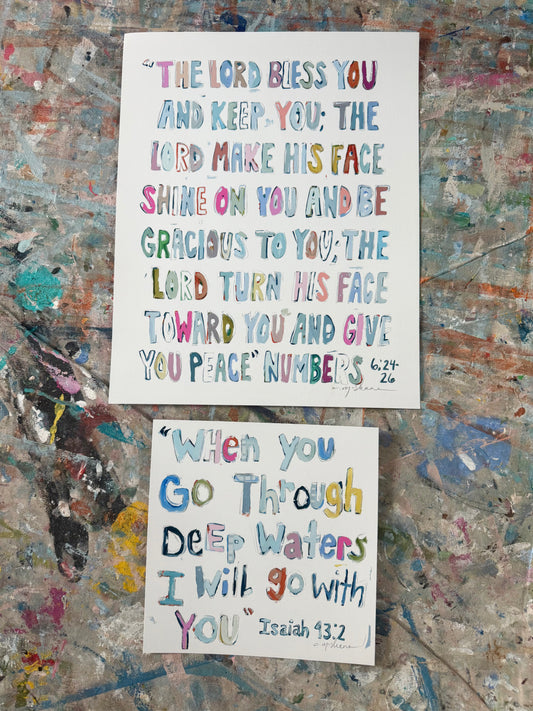 "THE LORD BLESS YOU
AND KEEP YOU; THE
LORD MAKE HIS FACE
SHINE ON YOU AND BE
GRACIOUS TO YOU; THE
LORD TURN HIS FACE
TOWARD YOU AND GIVE
YOU PEACE" NUMBERS 6:24-
26
"WHEN YOU
GO THROUGH
DEEP WATERS
I WILL go WITH
YOU" Isaiah 43:2